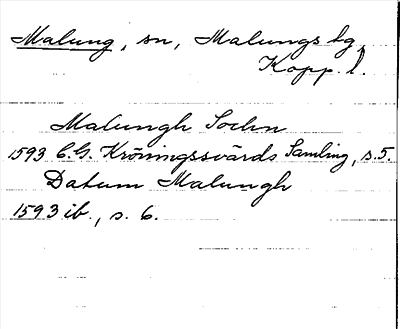 Malung, sn, Malungs tg,
Kopp. l.
Malungh Sochn
1593 C.G. Kröningssvärds Samling, s. 5.
Datum Malungh
1593 ib., s. 6.